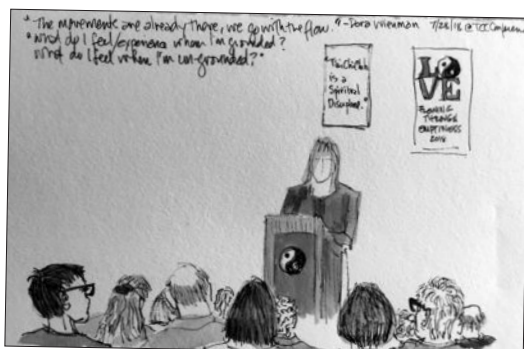 "The movements are already there, we go with the flow." - Dora 7/28/18 @ TCC
"What do I feel/experience when I'm grounded?
What do I feel when I'm un-grounded?"
"T'ai Chi Chih
is a
Spiritual
Discipline."
LOVE
FLOWING
THROUGH
EMPTINESS
2018